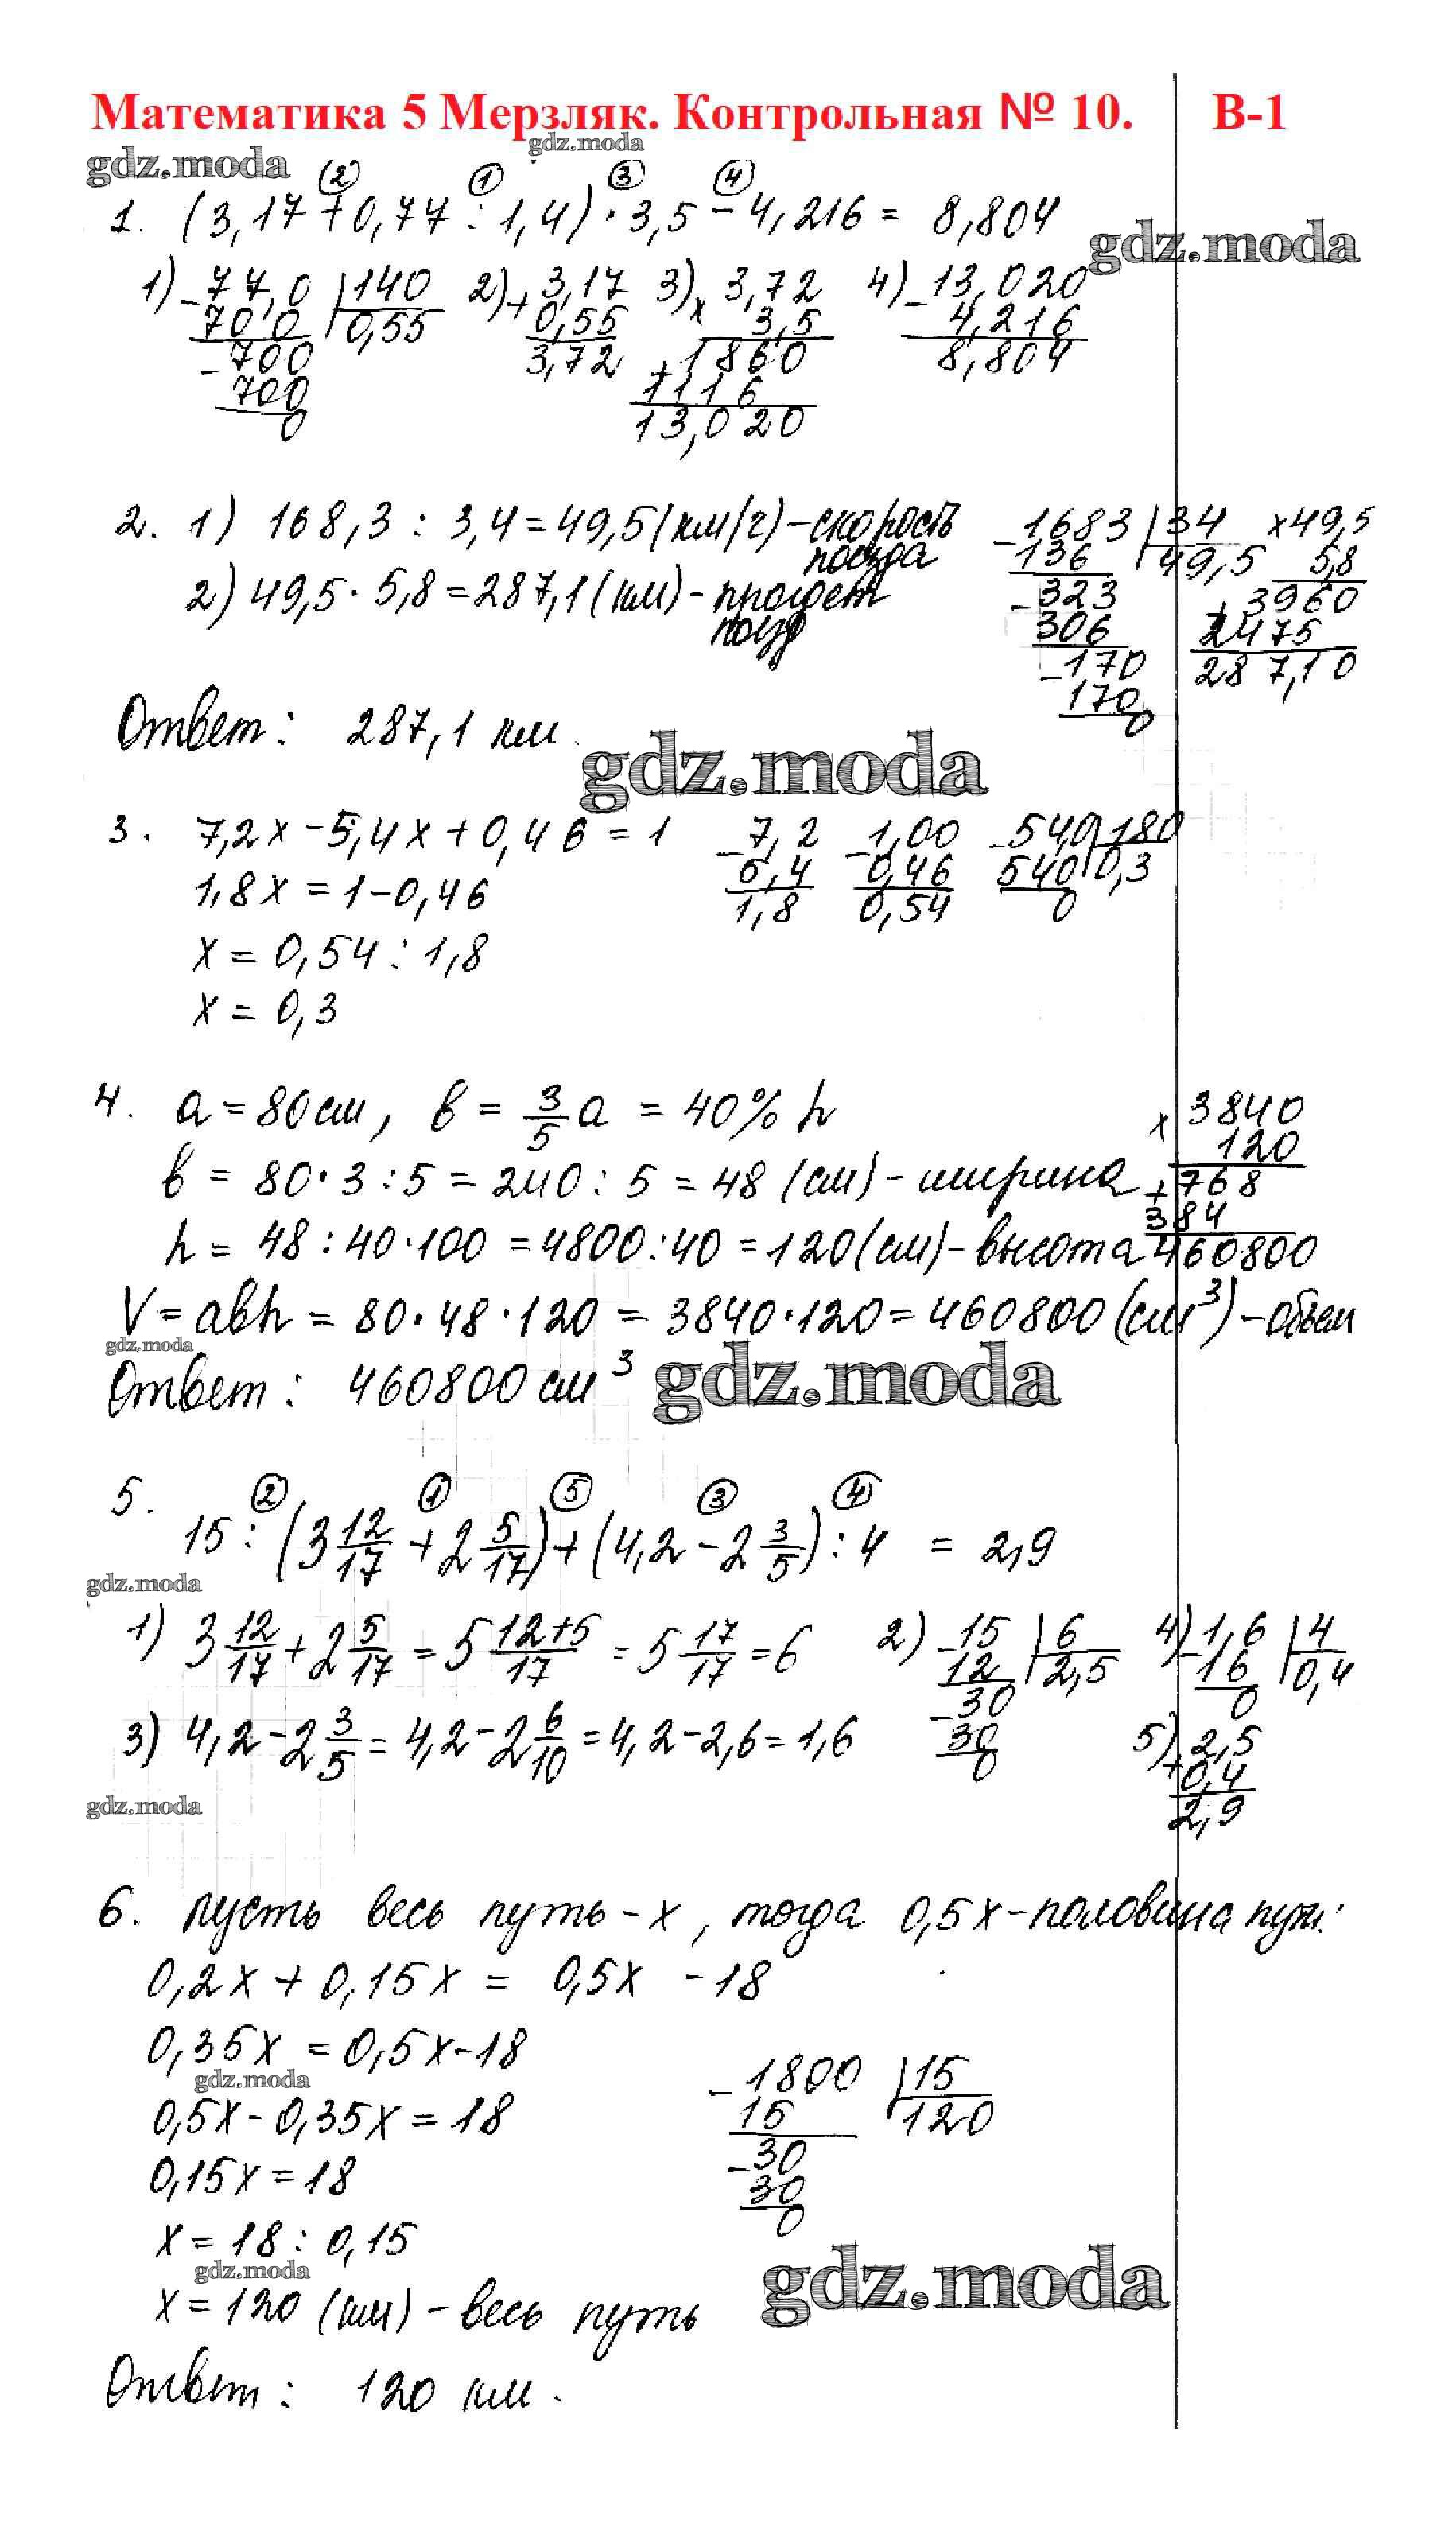 Математика 5 Мерзляк. Контрольная № 10. В-1
gdz.moda
gdz.moda
2 1 3 4
1. (3,17+0,77:1,4)·3,5-4,216= 8,804
gdz.moda
1) -77,0 |140 2) +3,17 3) x 3,72 4) -13,020
700 0,55 0,55 3,5 4,216
-700 3,72 +1860 8,804
700 1116
0 13,020
2. 1) 168,3 : 3,4=49,5(км/г)-скорость поезда
-1683 |34 x49,5
136 49,5 5,8
2) 49,5·5,8=287,1(км)-пройдет
-323 +3960
306 2475
-170 287,10
170
0
Ответ: 287,1 км.
gdz.moda
3. 7,2x-5,4x+0,46=1 -7,2 -1,00 -54,0 |180
1,8x=1-0,46 5,4 0,46 540 0,3
1,8 0,54 0
x=0,54:1,8
x=0,3
4. a=80см, b= 3/5 a = 40% h
x 3840
120
b = 80·3:5=240:5=48 (см)-ширина
+768
384
h= 48:40·100=4800:40=120(см)-высота 460800
V=abh=80·48·120=3840·120=460800(см³)-объем
gdz.moda
Ответ: 460800см³
gdz.moda
5. 2 1 5 3 4
15:(3 12/17+2 5/17)+(4,2-2 3/5):4 = 2,9
gdz.moda
1) 3 12/17+2 5/17=5 12+5/17=5 17/17=6 2) -15 |6 4) -1,6 |4
12 2,5 16 0,4
-30 0
3) 4,2-2 3/5=4,2-2 6/10=4,2-2,6=1,6 30 5) +2,5
0 0,4
2,9
gdz.moda
6. пусть весь путь-x, тогда 0,5x-половина
0,2x+0,15x = 0,5x -18
0,35x=0,5x-18
gdz.moda
-1800 |15
0,5x-0,35x=18 15 120
-30
0,15x=18 30
0
x=18:0,15
gdz.moda
gdz.moda
x=120 (км)-весь путь
Ответ: 120 км.